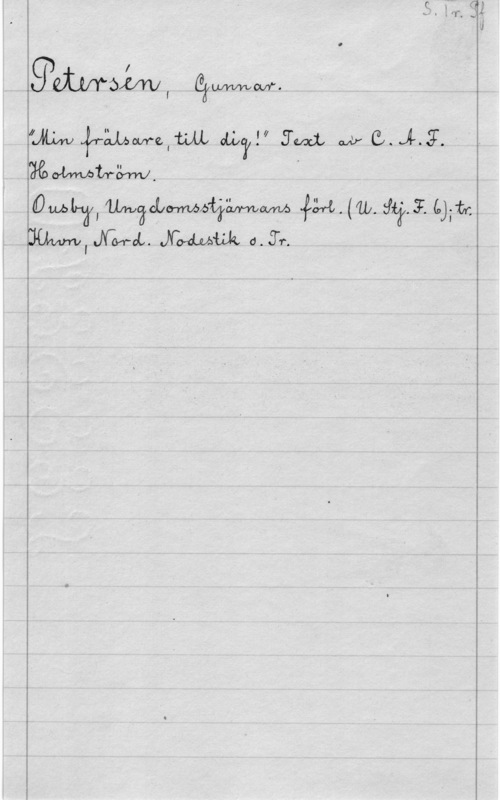 S. Tr. Sf
Petersén, Gunnar.
"Min frälsare, till dig!" Text av C. A. F.
Holmström.
Ousby, Ungdomsstjärnans förl. (U. Stj. F. 6); tr.
Khvn, Nord. Nodestik o. Tr.